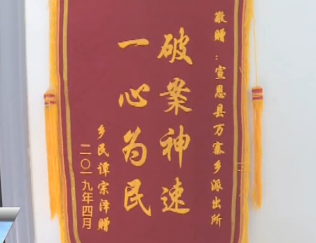 敬赠：宣恩县万寨乡派出所
破案神速
一心为民
乡民谭宗泽赠
二〇一九年四月